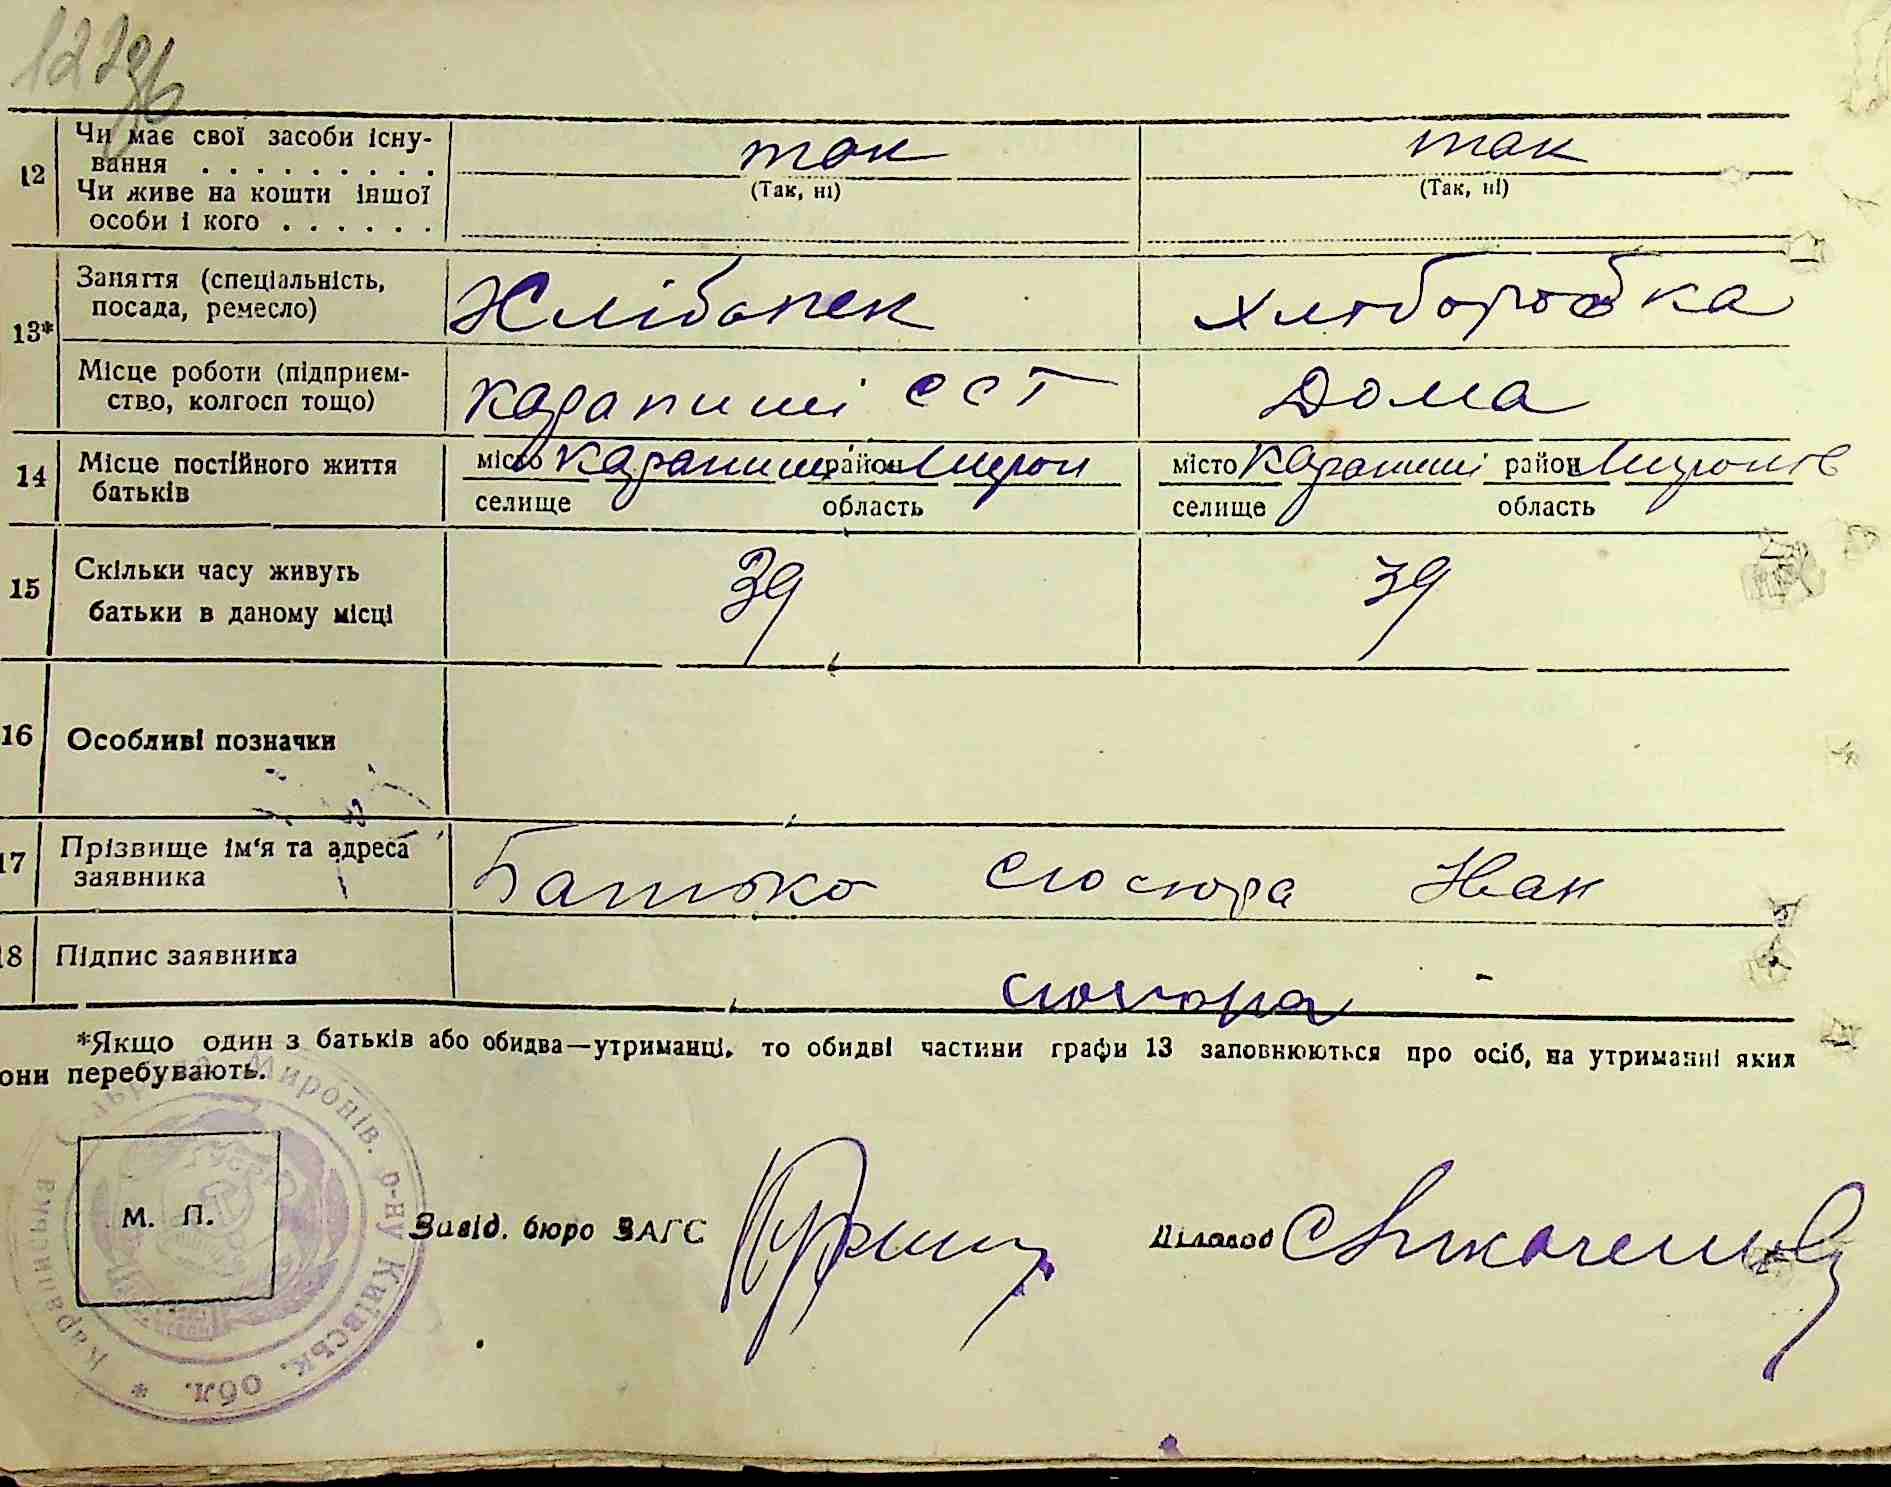 12
Чи має свої засоби існу-
вання . . . . . . . . .
так
так
(Так, ні)
(Так, ні)
Чи живе на кошти іншої
особи і кого . . . . . .
13*
Заняття (спеціальність,
посада, ремесло)
Хлібопек
Хліборобка
Місце роботи (підприєм-
ство, колгосп тощо)
Карапиші ССТ
Дома
14
Місце постійного життя
батьків
місто Карапиші район Мирон
селище область
місто Карапиші район Миронів
селище область
15
Скільки часу живуть
батьки в даному місці
39
39
16
Особливі позначки
17
Прізвище ім'я та адреса
заявника
Батько Сюсюра Іван
18
Підпис заявника
Сюсюра
*Якщо один з батьків або обидва—утриманці, то обидві частини графи 13 заповнюються про осіб, на утриманні яких
они перебувають.
Миронів. р-ну Київськ. обл. *
М. П.
Завід. бюро ЗАГС
Діловод